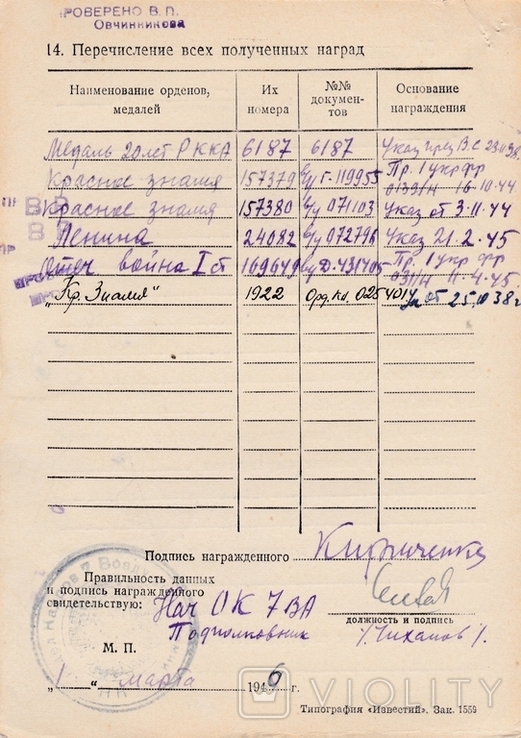 ПРОВЕРЕНО В. П.
Овчинникова
14. Перечисление всех полученных наград
Наименование орденов, медалей
Их номера
№№ документов
Основание награждения
Медаль 20 лет РККА 6187 6187 Указ През В.С 23.02.38.
Красное знамя 157379 в/у Г-119955 Пр. 1 укр фр 0133/н 16.10.44
Красное знамя 157380 в/у 071103 Указ от 3.11.44
Ленина 24082 в/у 072796 Указ 21.2.45
Отеч война I ст 169649 вуД-431405 Пр. 1 укр фр 031/н 11.4.45.
„Кр. Знамя" 1922 Орд.кн. 025401 Ук от 25.10 38 г
Подпись награжденного Кириченко
Правильность данных
и подпись награжденного
свидетельствую: Нач ОК 7 ВА
должность и подпись
Подполковник /Чиханов/.
М. П.
„1" марта 1946 г.
Типография «Известий». Зак. 1559
VIOLITY